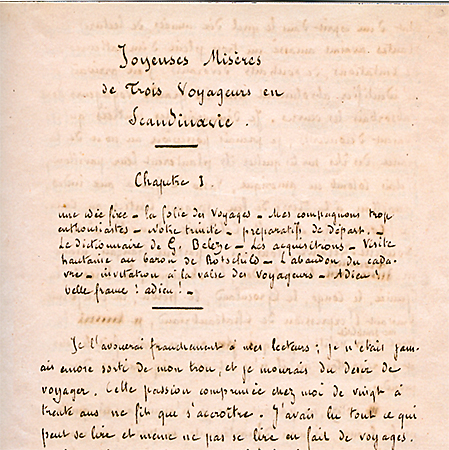 Joyeuses Misères
de Trois Voyageurs en
Scandinavie.
Chapitre I
une idée fixe – la folie des voyages – Mes compagnons trop
enthousiastes – notre trinité – préparatifs de départ. –
Le dictionnaire de G. Belèze – Les acquisitions – Visite
hautaine au baron de Rotschild – L'abandon du cada-
vre – invitation à la valse des Voyageurs – Adieu !
belle france ! adieu ! –
Je l'avouerai franchement à mes lecteurs ; je n'étais jam-
ais encore sorti de mon trou, et je mourais du désir de
voyager. Cette passion comprimée chez moi de vingt à
trente ans ne fit que s'accroître. J'avais lu tout ce qui
peut se lire et même ne pas se lire en fait de voyages.